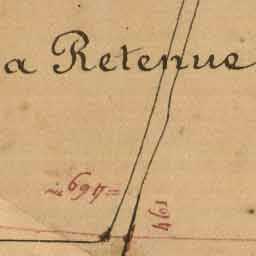 a Retenue
697
194